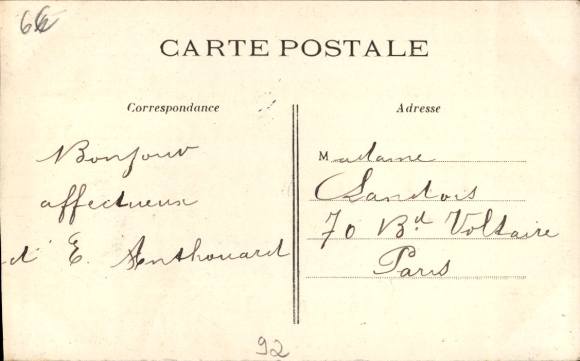 CARTE POSTALE
Correspondance
Bonjour
affectueux
d'E. Anthouard
Adresse
Madame
Landois
70 Bd Voltaire
Paris
92